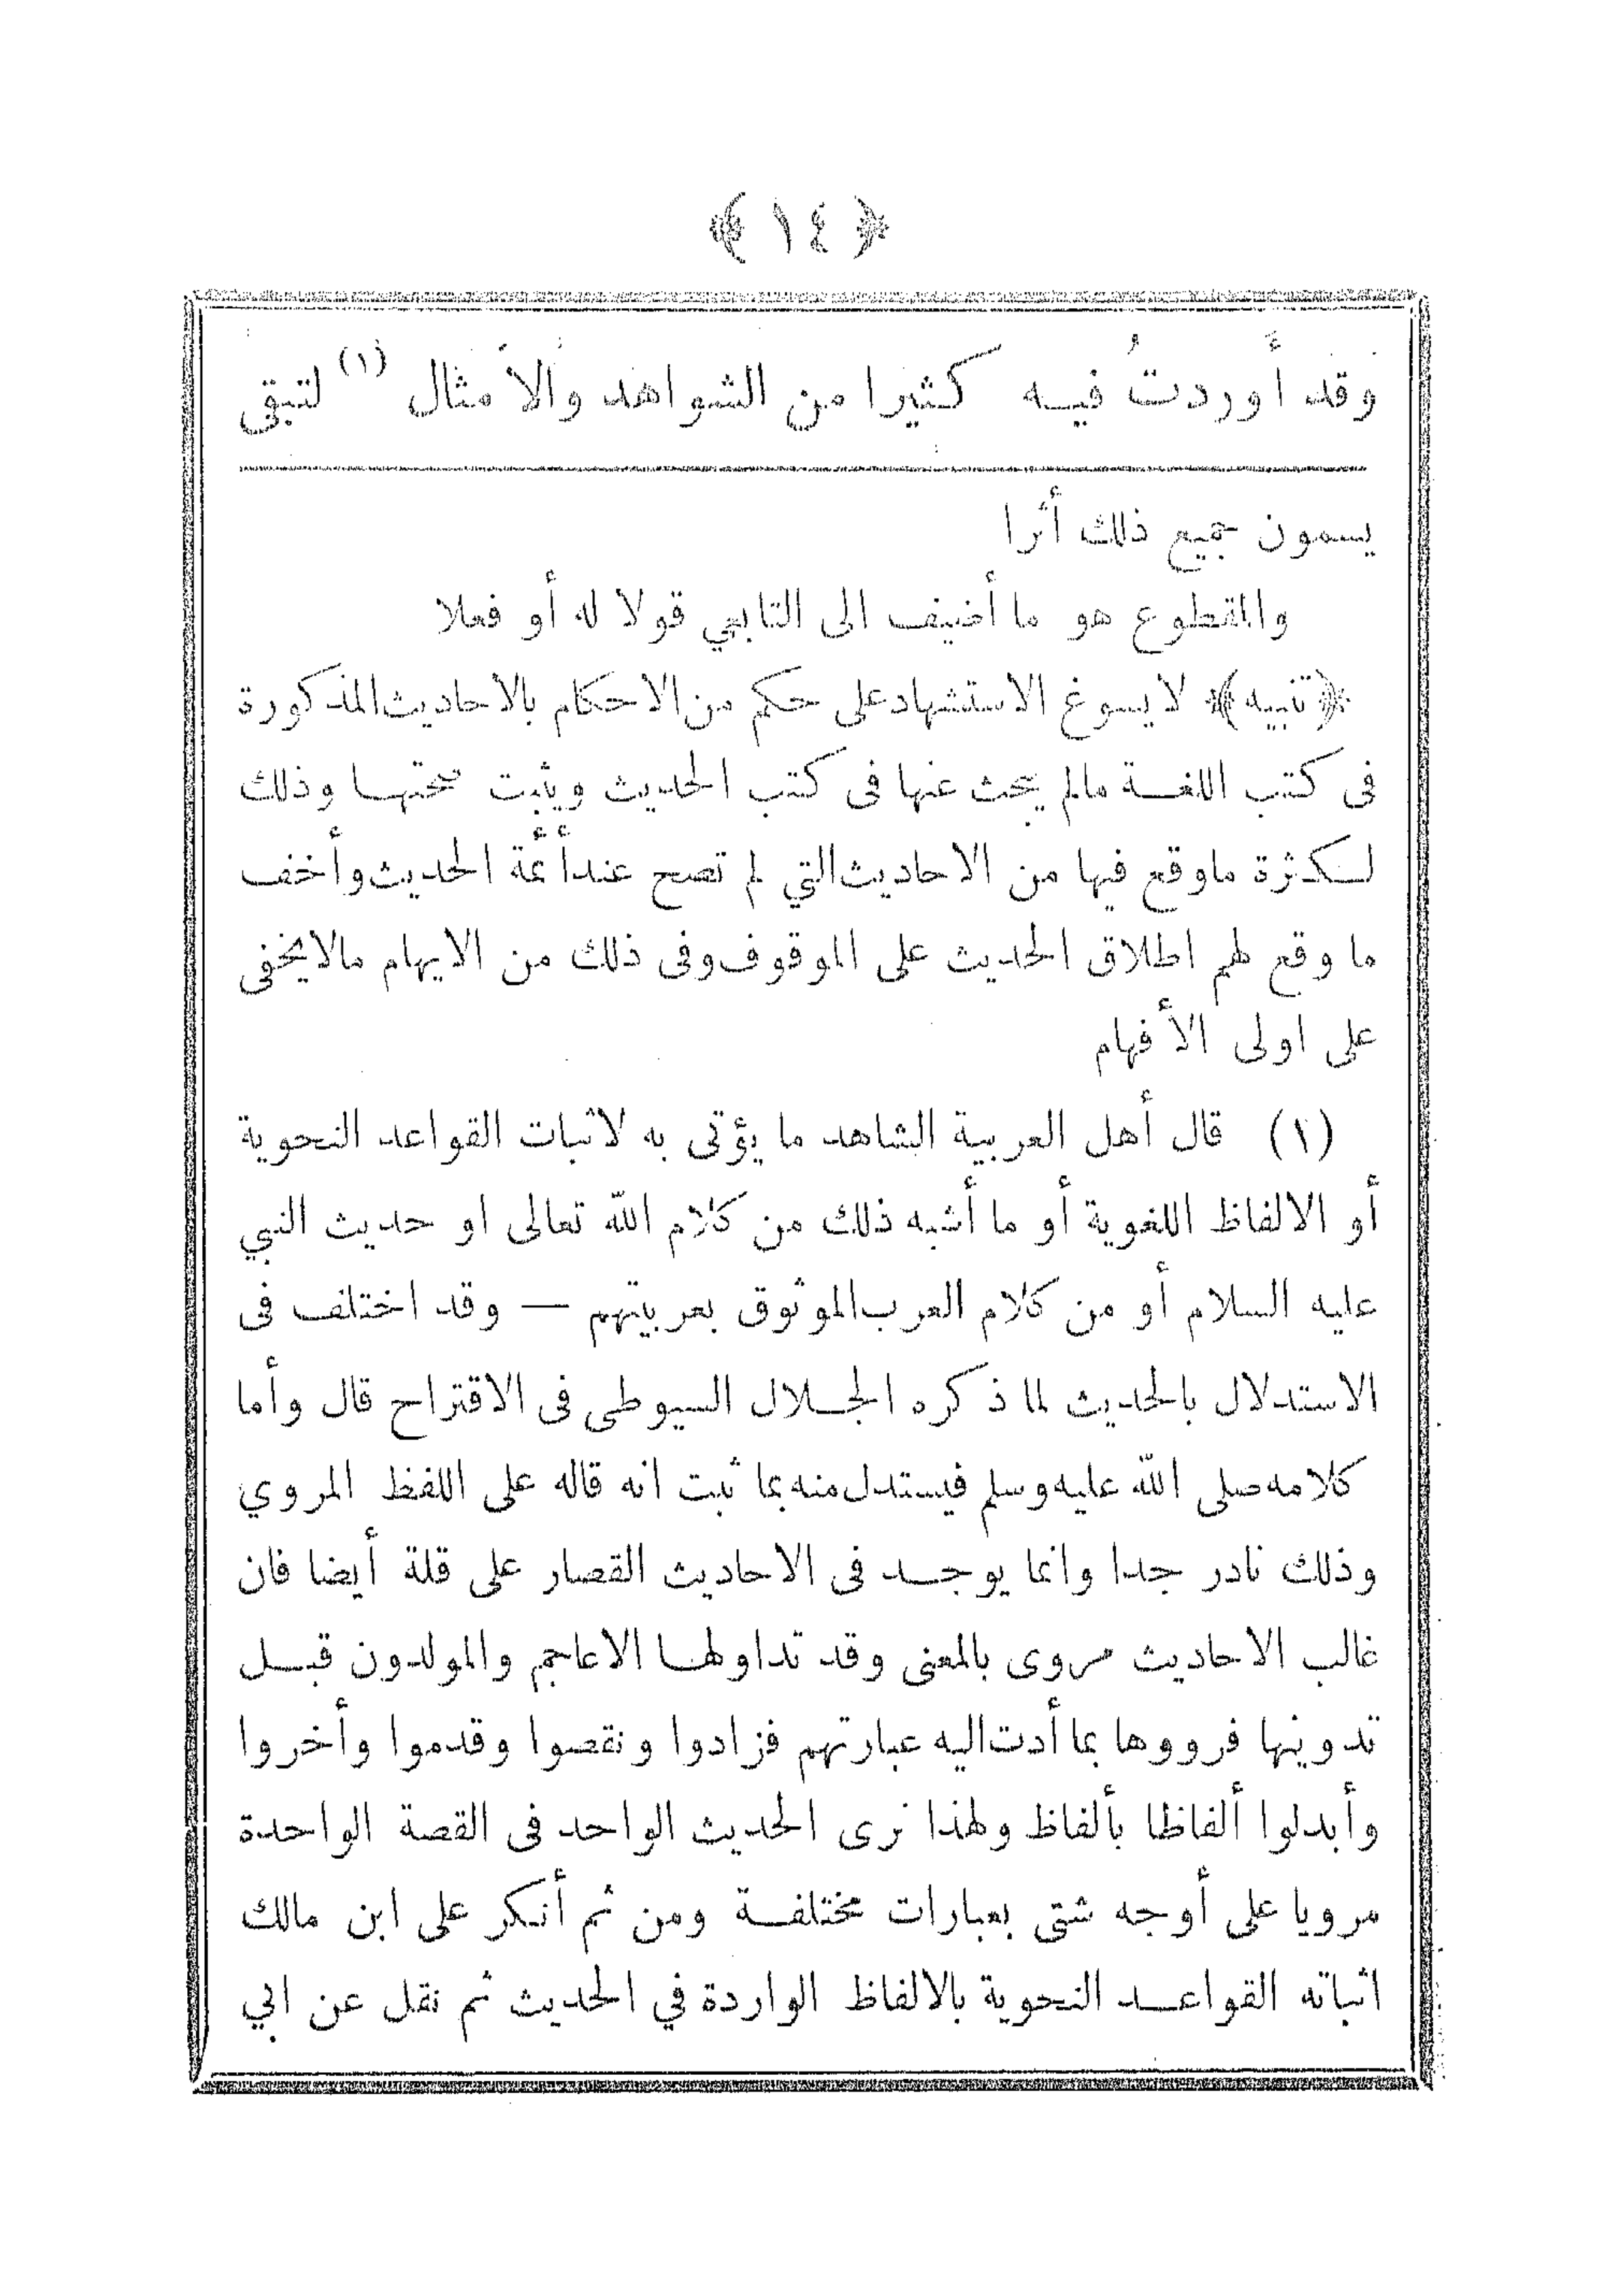 ﴿ ١٤ ﴾
وقد أوردتُ فيه كثيرا من الشواهد والأمثال (١) لتبقى
يسمون جميع ذلك أثرا
والمقطوع هو ما أضيف الى التابعي قولا له أو فعلا
﴿تنبيه﴾ لا يسوغ الاستشهاد على حكم من الاحكام بالاحاديث المذكورة
فى كتب اللغة مالم يبحث عنها فى كتب الحديث ويثبت صحتها وذلك
لكثرة ماوقع فيها من الاحاديث التي لم تصح عند أئمة الحديث وأخف
ما وقع لهم اطلاق الحديث على الموقوف وفى ذلك من الايهام مالايخفى
على اولى الأفهام
(١) قال أهل العربية الشاهد ما يؤتى به لاثبات القواعد النحوية
أو الالفاظ اللغوية أو ما أشبه ذلك من كلام الله تعالى او حديث النبي
عليه السلام أو من كلام العرب الموثوق بعربيتهم — وقد اختلف فى
الاستدلال بالحديث لما ذكره الجلال السيوطى فى الاقتراح قال وأما
كلامه صلى الله عليه وسلم فيستدل منه بما ثبت انه قاله على اللفظ المروي
وذلك نادر جدا وانما يوجد فى الاحاديث القصار على قلة أيضا فان
غالب الاحاديث مروى بالمعنى وقد تداولها الاعاجم والمولدون قبل
تدوينها فرووها بما أدت اليه عبارتهم فزادوا ونقصوا وقدموا وأخروا
وأبدلوا ألفاظا بألفاظ ولهذا نرى الحديث الواحد فى القصة الواحدة
مرويا على أوجه شتى بعبارات مختلفة ومن ثم أنكر على ابن مالك
اثباته القواعد النحوية بالالفاظ الواردة في الحديث ثم نقل عن ابي